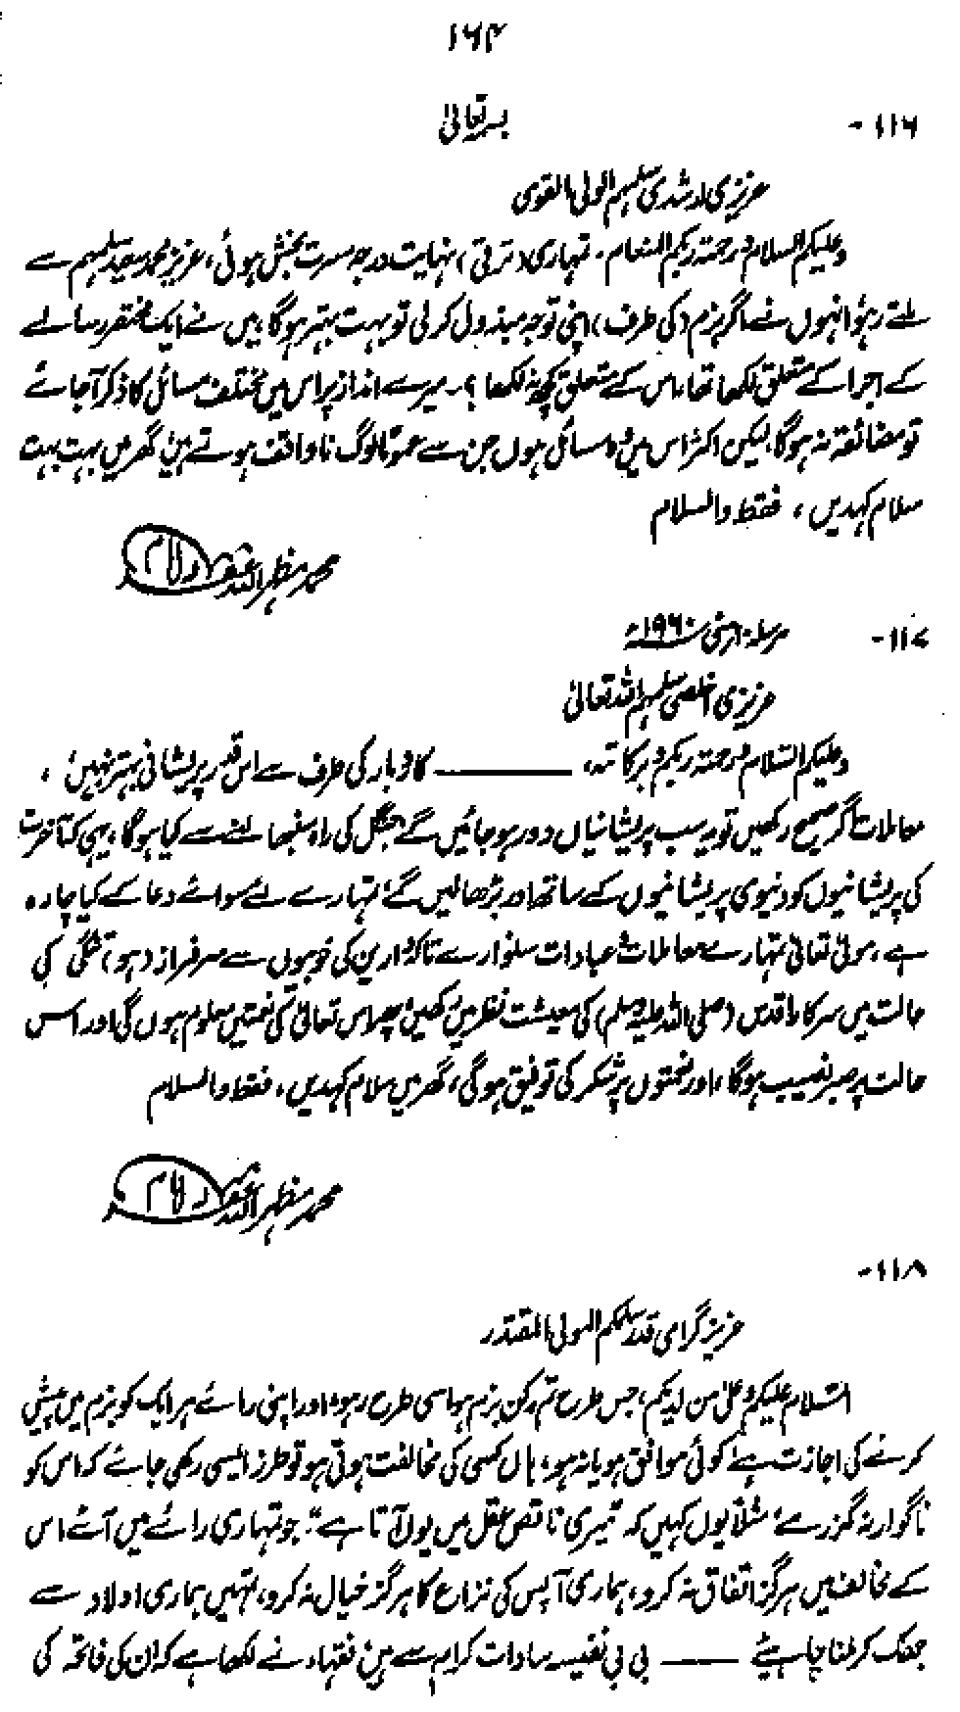 ۱۶۴
۱۱۶-
بسم تعالیٰ
عزیزی ارشدی سلمہم المولی القوی
وعلیکم السلام ورحمۃ ربکم المنعام۔ تمہاری (ترقی)، نہایت درجہ مسرت بخش ہوئی، عزیز محمد سعید سلمہم سے
ملتے رہو، انہوں نے اگر بزم (کی طرف) اپنی توجہ مبذول کرلی تو بہت بہتر ہوگا، میں نے ایک مختصر رسالے
کے اجرا کے متعلق لکھا تھا، اس کے متعلق کچھ نہ لکھا؟۔ میرے انداز پر اس میں مختلف مسائل کا ذکر آجائے
تو مضائقہ نہ ہوگا، لیکن اکثر اس میں وہ مسائل ہوں جن سے عموماً لوگ ناواقف ہوتے ہیں، گھر میں بہت بہت
سلام کہدیں، فقط والسلام
محمد مظہر اللہ غفرلہ
۱۱۷-
مرسلہ ۱۰ مئی ۱۹۶۰ء
عزیزی اخلصی سلمہم اللہ تعالیٰ
وعلیکم السلام ورحمۃ ربکم وبرکاتہ، ــــــــ کاروبار کی طرف سے اس قدر پریشانی بہتر نہیں،
معاملات اگر صحیح رکھیں تو یہ سب پریشانیاں دور ہوجائیں گے، جنگل کی راہ سنبھالنے سے کیا ہوگا، یہی کہ آخرت
کی پریشانیوں کو دنیوی پریشانیوں کے ساتھ اور بڑھالیں گے، تمہارے لئے سوائے دعا کے کیا چارہ
ہے، مولیٰ تعالیٰ تمہارے معاملات و عبادات سنوارے تاکہ دارین کی خوبیوں سے سرفراز (ہو)، تنگی کی
حالت میں سرکار اقدس (صلی اللہ علیہ وسلم) کی معیشت نظر میں رکھیں، پھر اس تعالیٰ کی نعمتیں معلوم ہوں گی اور اس
حالت پر صبر نصیب ہوگا، اور نعمتوں پر شکر کی توفیق ہوگی، گھر میں سلام کہدیں، فقط والسلام
محمد مظہر اللہ غفرلہ
۱۱۸-
عزیز گرامی قدر سلمکم المولی المقتدر
السلام علیکم وعلیٰ من لدیکم، جس طرح تم رکن بزم ہو اسی طرح رہو، اور اپنی رائے ہر ایک کو بزم میں پیش
کرنے کی اجازت ہے، کوئی موافق ہو یا نہ ہو، ہاں کسی کی مخالفت ہوتی ہو تو طرز ایسی رکھی جائے کہ اس کو
ناگوار نہ گزرے، مثلاً یوں کہیں کہ "میری ناقص عقل میں یوں آتا ہے" جو تمہاری رائے میں آئے اس
کے مخالف میں ہرگز اتفاق نہ کرو، ہماری آپس کی نزاع کا ہرگز خیال نہ کرو، تمہیں ہماری اولاد سے
جھک کر ملنا چاہیئے ــــــــ بی بی نفیسہ سادات کرام سے ہیں، فقہاء نے لکھا ہے کہ ان کی فاتحہ کی